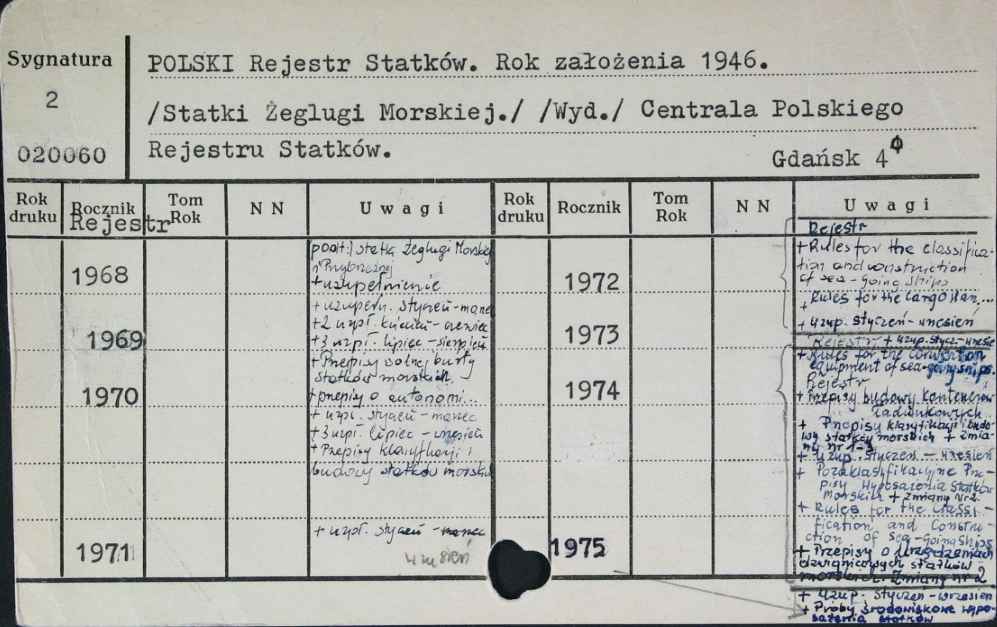 Sygnatura
2
020060
POLSKI Rejestr Statków. Rok założenia 1946.
/Statki Żeglugi Morskiej./ /Wyd./ Centrala Polskiego
Rejestru Statków.
Gdańsk 4
Rok druku
Rocznik
Tom Rok
N N
Uwagi
Rok druku
Rocznik
Tom Rok
N N
Uwagi
Rejestr
1968
statki Żeglugi Morskiej
i Przybrzeżnej
+ uzupełnienie
1969
+ uzupełn. styczeń-marzec
+ 2 uzpł. kwiecień-czerwiec
+ 3 uzpł. lipiec-sierpień
1970
+ Przepisy wolnej burty
statków morskich
+ przepisy o autonomi...
+ uzpł. styczeń-marzec
+ 3 uzpł. lipiec-wrzesień
+ Przepisy klasyfikacji i
budowy statków morskich
1971
+ uzpł. styczeń-marzec
wrzesień
1972
Rejestr
+ Rules for the classifica-
tion and construction
of sea-going ships
+ Rules for the cargo
+ uzup. styczeń-wrzesień
1973
Rejestr + uzup. stycz.-wrzesień
+ Rules for the
equipment of sea-going ships.
1974
Rejestr
+ Przepisy budowy kontenerów
ładunkowych
+ Przepisy klasyfikacji i budo-
wy statków morskich + zmia-
ny nr 1-
+ uzup. styczeń-wrzesień
+ Pozaklasyfikacyjne Prze-
pisy Wyposażenia statków
Morskich + zmiany nr 2
+ Rules for the classi-
fication and Constru-
ction of Sea-Going Ships
+ Przepisy o urządzeniach
dźwignicowych statków
morskich. Zmiany nr 2
1975
+ uzup. styczeń-wrzesień
+ Próby środowiskowe wypo-
sażenia statków